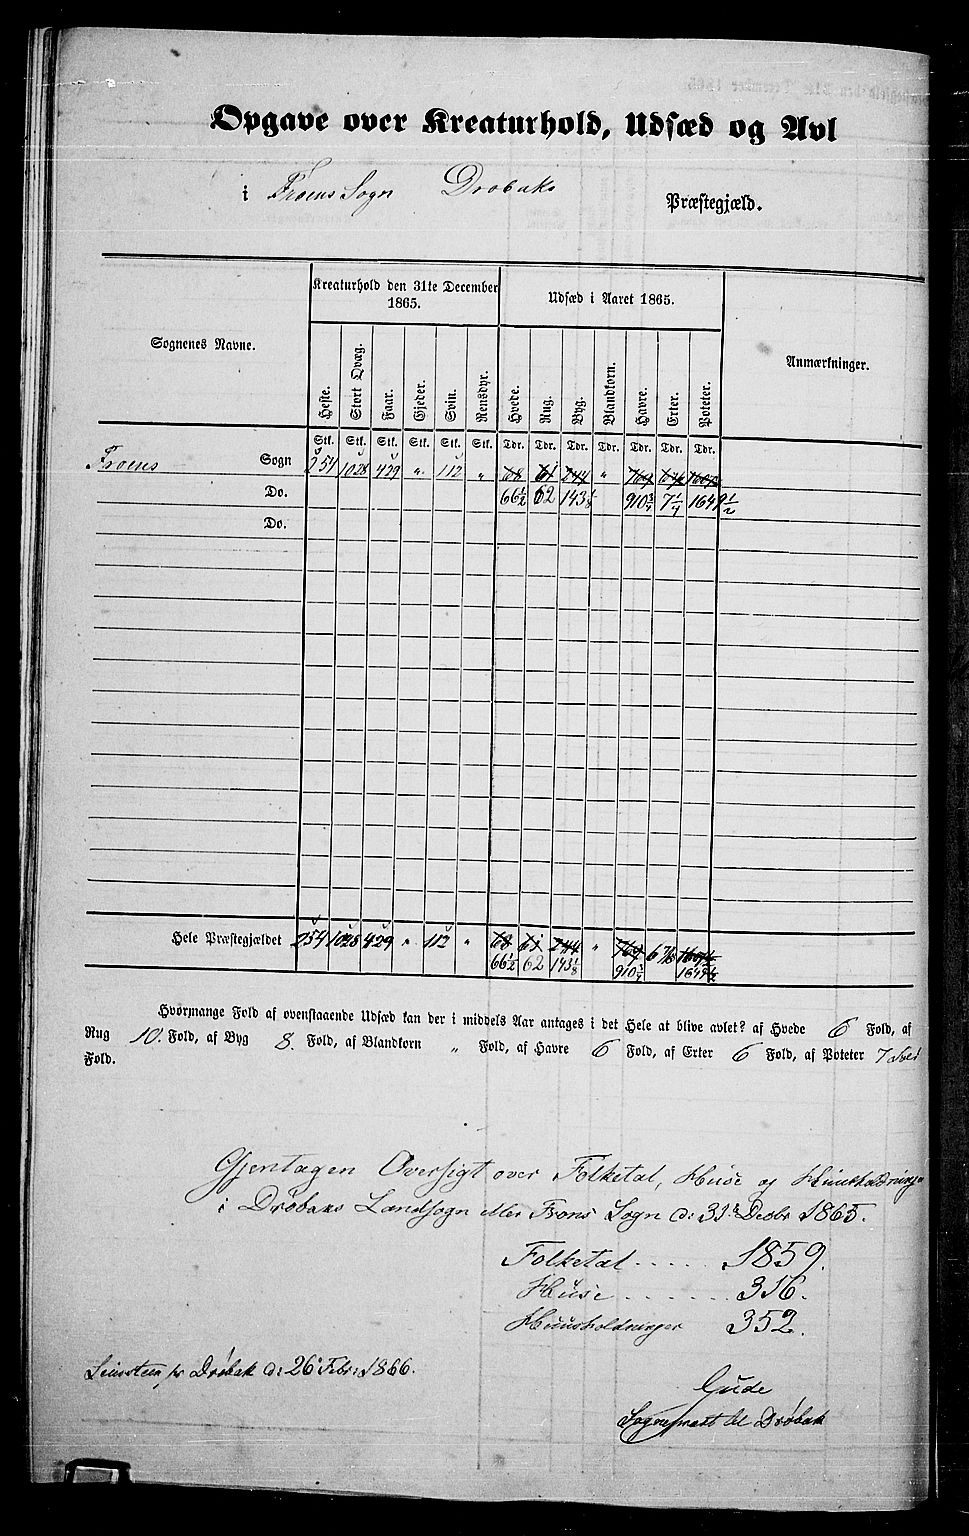 Opgave over Kreaturhold, Udsæd og Avl
i Froens Sogn Drøbaks Præstegjæld.
Kreaturhold den 31te December 1865.
Udsæd i Aaret 1865.
Sognenes Navne.
Anmærkninger.
Heste. Stort Qvæg. Faar. Gjeder. Svin. Rensdyr. Hvede. Rug. Byg. Blandkorn. Havre. Erter. Poteter.
Stk. Stk. Stk. Stk. Stk. Stk. Tdr. Tdr. Tdr. Tdr. Tdr. Tdr. Tdr.
Froens Sogn 254 1028 429 " 112 " 68 61 244 "
Do. 66½ 62 143⅛ 910¾ 7¼ 1649½
Do.
Hele Præstegjældet 254 1028 429 " 112 " 68 61 244 "
66½ 62 143⅛
Hvormange Fold af ovenstaaende Udsæd kan der i middels Aar antages i det Hele at blive avlet? af Hvede 6 Fold, af
Rug 10. Fold, af Byg 8. Fold, af Blandkorn " Fold, af Havre 6 Fold, af Erter 6 Fold, af Poteter 7
Fold.
Gjentagen Oversigt over Folketal, Huse og
i Drøbaks Landsogn eller Frons Sogn d: 31te Decbr 1865.
Folketal ..... 1859.
Huse ....... 316.
Huusholdninger 352.
pr Drøbak d: 26 Febr: 1866.
Gude
Sognepræst til Drøbak